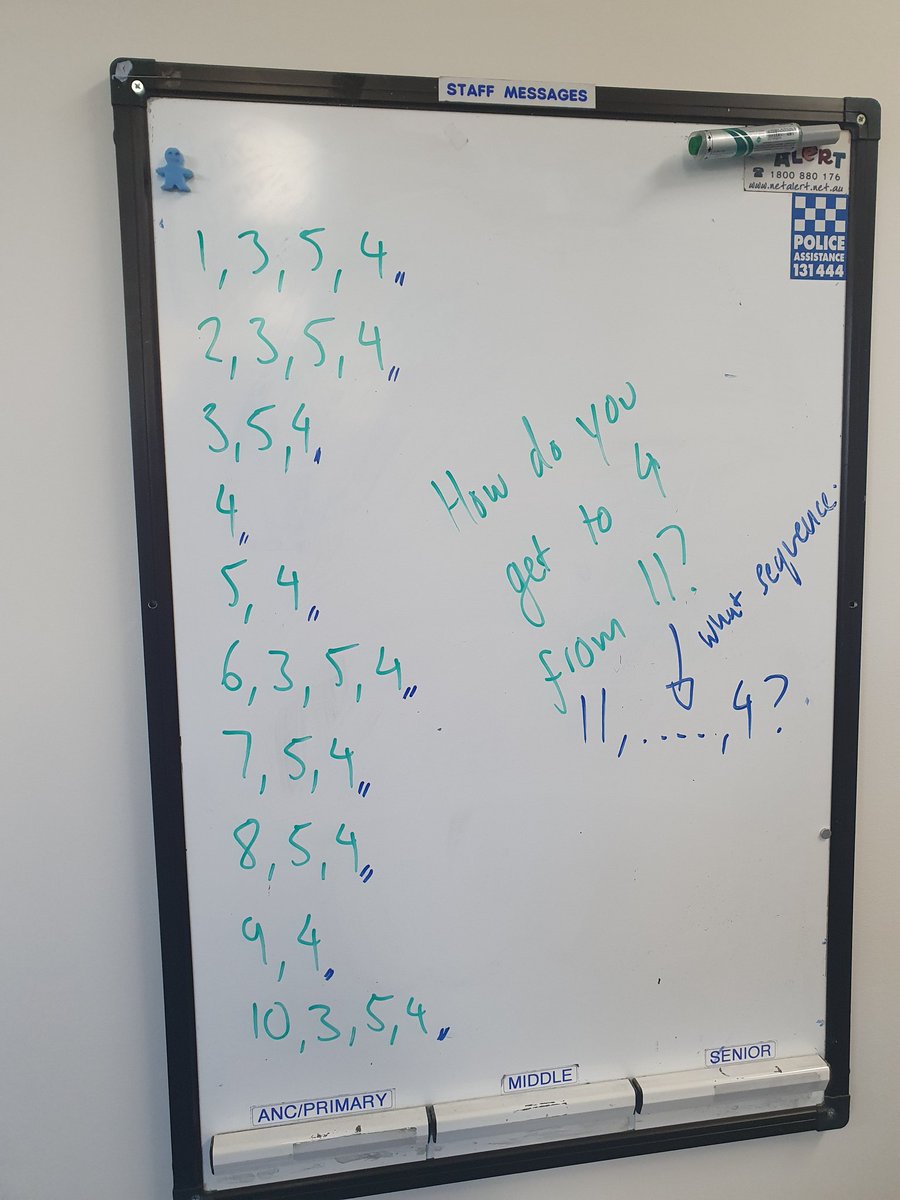 STAFF MESSAGES
ALERT
☎ 1800 880 176
www.netalert.net.au
POLICE
ASSISTANCE
131 444
1, 3, 5, 4 ,,
2, 3, 5, 4 ,,
3, 5, 4 ,,
4 ,,
5, 4 ,,
6, 3, 5, 4 ,,
7, 5, 4 ,,
8, 5, 4 ,,
9, 4 ,,
10, 3, 5, 4 ,,
How do you
get to 4
from 11?
what sequence.
11, ....., 4?
ANC/PRIMARY
MIDDLE
SENIOR